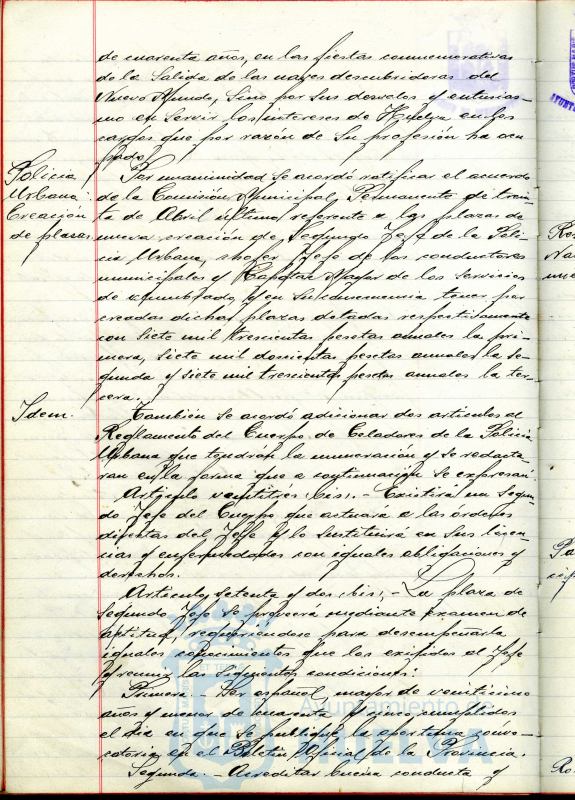 de cuarenta años, en las fiestas conmemorativas
de la Salida de las naves descubridoras del
Nuevo Mundo, Sino por sus desvelos y entusias-
mo en servir los intereses de Huelva en los
cargos que por razón de su profesión ha ocu
pado.
Policia
Urbana
Creación
de plazas
Por unanimidad se acordó ratificar el acuerdo
de la Comisión Municipal Permanente de trein-
ta de Abril último, referente a las plazas de
nueva creación de Segundo Jefe de la Poli-
cia Urbana, Jefe de los conductores
municipales y Capataz Mayor de los Servicios
de alumbrado, y en su consecuencia tener por
creadas dichas plazas dotadas respectivamente
con siete mil trescientas pesetas anuales la pri-
mera, siete mil doscientas pesetas anuales la se-
gunda y siete mil trescientas pesetas anuales la ter-
cera.
Idem.
También se acordó adicionar dos artículos al
Reglamento del Cuerpo de Celadores de la Policia
Urbana que tendran la numeración y se redacta-
ran en la forma que a continuación se expresan:
Artículo veintitrés bis.- Existirá un Segun-
do Jefe del Cuerpo que actuará a las órdenes
directas del Jefe y lo sustituirá en sus licen-
cias y enfermedades con iguales obligaciones y
derechos.
Artículo setenta y dos bis.- La plaza de
Segundo Jefe se proveerá mediante examen de
aptitud, requiriendose para desempeñarla
iguales conocimientos que los exigidos al Jefe
y reunir las siguientes condiciones:
Primera.- Ser español, mayor de veinticinco
años y menor de cuarenta y cinco cumplidos
el día en que se publique la oportuna convo-
catoria en el Boletin Oficial de la Provincia.
Segunda.- Acreditar buena conducta y
Ayuntamiento de